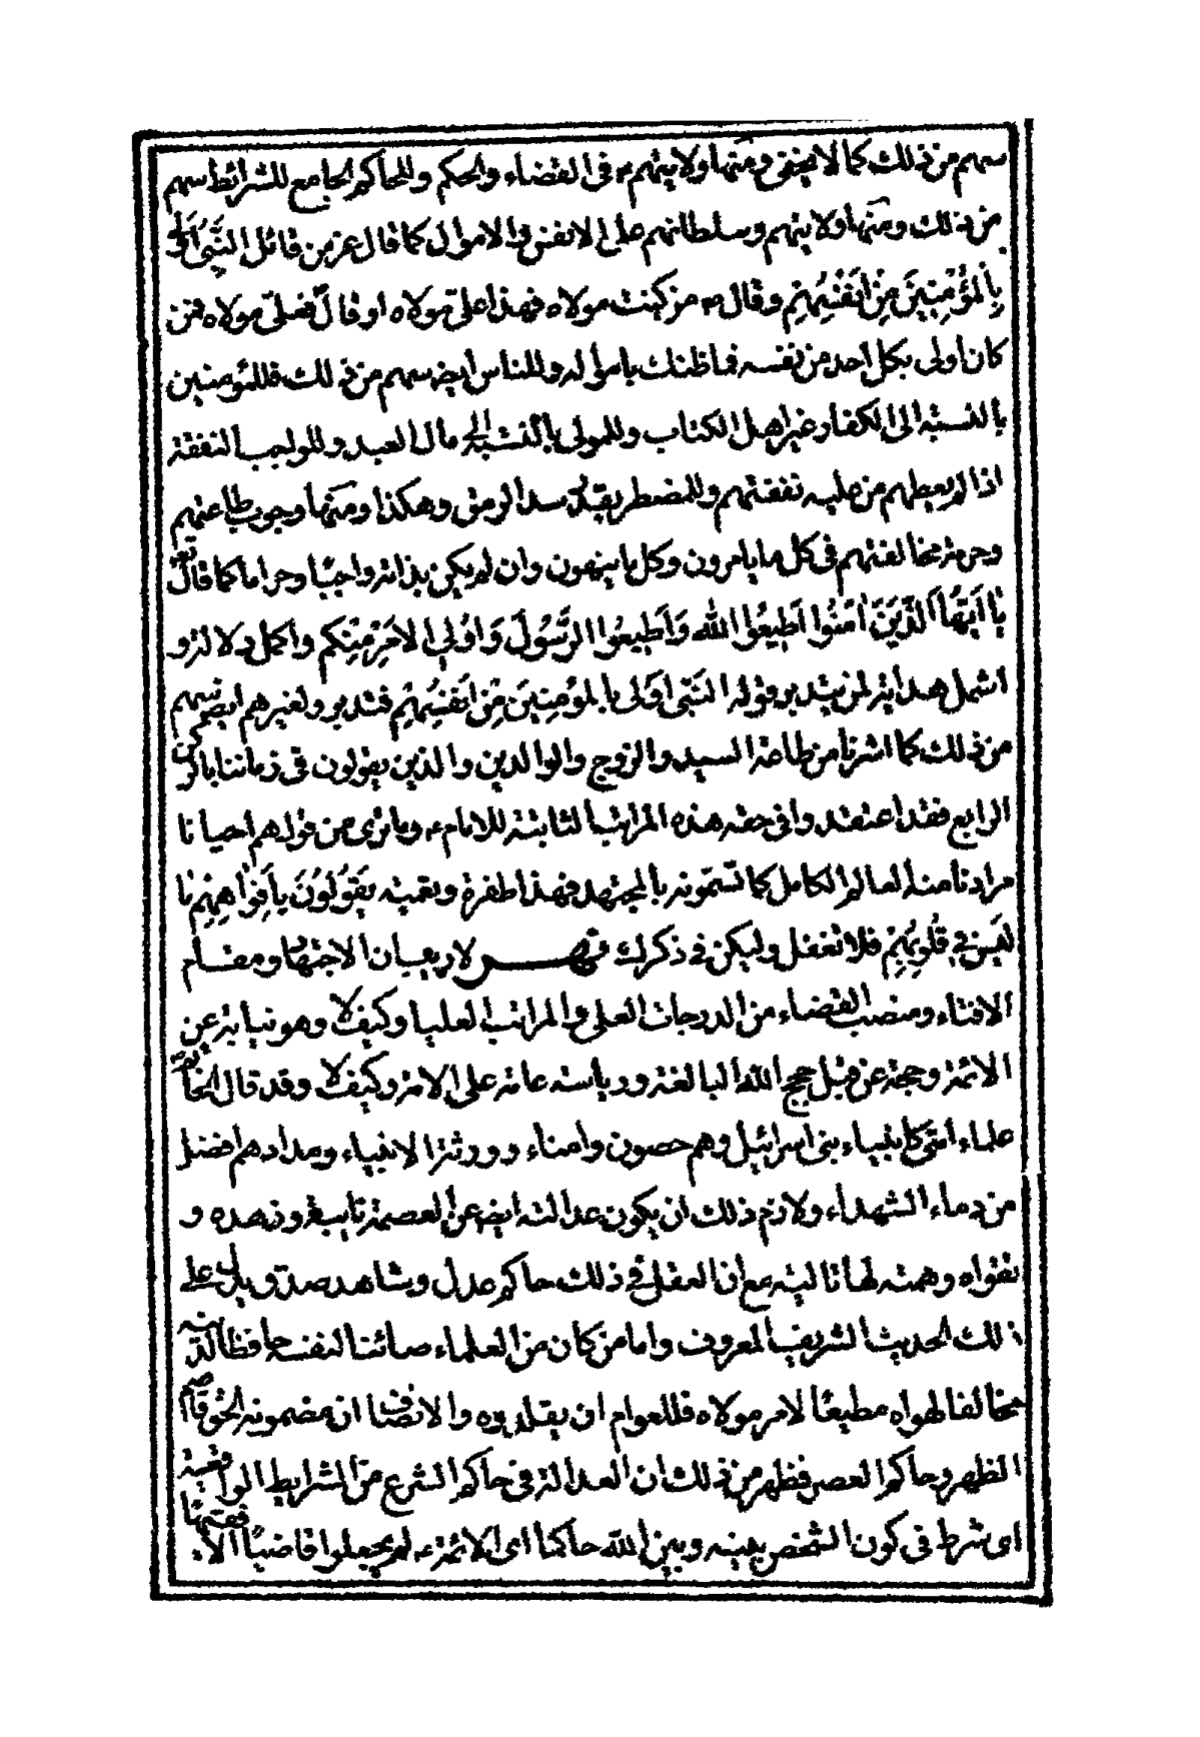 سهم من ذلك كما لا يخفى ومنها ولايتهم ع في القضاء والحكم وللحاكم الجامع للشرائط سهم
من ذلك ومنها ولايتهم وسلطانهم على الانفس والاموال كما قال عز من قائل النَّبِيُّ اَوْلى
بِالْمُؤْمِنِينَ مِنْ اَنْفُسِهِمْ وقال ص من كنت مولاه فهذا علي مولاه او قال فعلي مولاه فمن
كان اولى بكل احد من نفسه فما ظنك بامواله وللناس ايضا سهم من ذلك فللمؤمنين
بالنسبة الى الكفار غير اهل الكتاب وللمولى بالنسبة الى مال العبد وللواجب النفقة
اذا لم يعطهم من عليه نفقتهم وللمضطر بقدر سد الرمق وهكذا ومنها وجوب طاعتهم
وحرمة مخالفتهم في كل ما يامرون وكل ما ينهون وان لم يكن بذاته واجبا وحراما كما قال تع
يا اَيُّهَا الَّذِينَ امَنُوا اَطِيعُوا اللّه وَاَطِيعُوا الرَّسُولَ وَاُولِي الاَمْرِ مِنْكم واكمل دلالة و
اشمل هداية لمن يتدبر قوله النَّبِي اَوْلى بالمؤمِنِينَ مِنْ اَنْفُسِهِمْ فتدبر ولغيرهم ايضا سهم
من ذلك كما اشرنا من طاعة السيد والزوج والوالدين والذين يقولون في زماننا بالركن
الرابع فقد اعتقدوا في حقه هذه المراتب الثابتة للامام ع وما ترى من قولهم احيانا
مرادنا منه العالم الكامل كما تسمونه بالمجتهد فهذا طفرة وتقية يَقُولُونَ بِاَفْواهِهِمْ مٰا
لَيْسَ فِي قُلُوبِهِمْ فلا تغفل وليكن في ذكرك لا ريب ان الاجتهاد ومقام
الافتاء ومنصب القضاء من الدرجات العلى والمراتب العليا وكيف لا وهو نيابة عن
الائمة وحجة عن قبل حجج الله البالغة ورياسة عامة على الامة وكيف لا وقد قال الخاتم ص
علماء امتي كانبياء بني اسرائيل وهم حصون وامناء وورثة الانبياء ومدادهم افضل
من دماء الشهداء ولازم ذلك ان يكون عدالته ايضا عن العصمة نايبة وزهده و
تقواه وهمته لها تالية مع ان العقل في ذلك حاكم عدل وشاهد صدق ويدل على
ذلك الحديث الشريف المعروف واما من كان من العلماء صائنا لنفسه حافظا لدينه
مخالفا لهواه مطيعا لامر مولاه فللعوام ان يقلدوه والانصاف ان مضمونه لحق قاصم
الظهر وحاكم العصر فظهر من ذلك ان العدالة في حاكم الشرع من الشرايط الواقعية
اى شرط في كون الشخص بينه وبين الله حاكما اى الائمة ع لم يجعلوا قاضيا الا فقيها